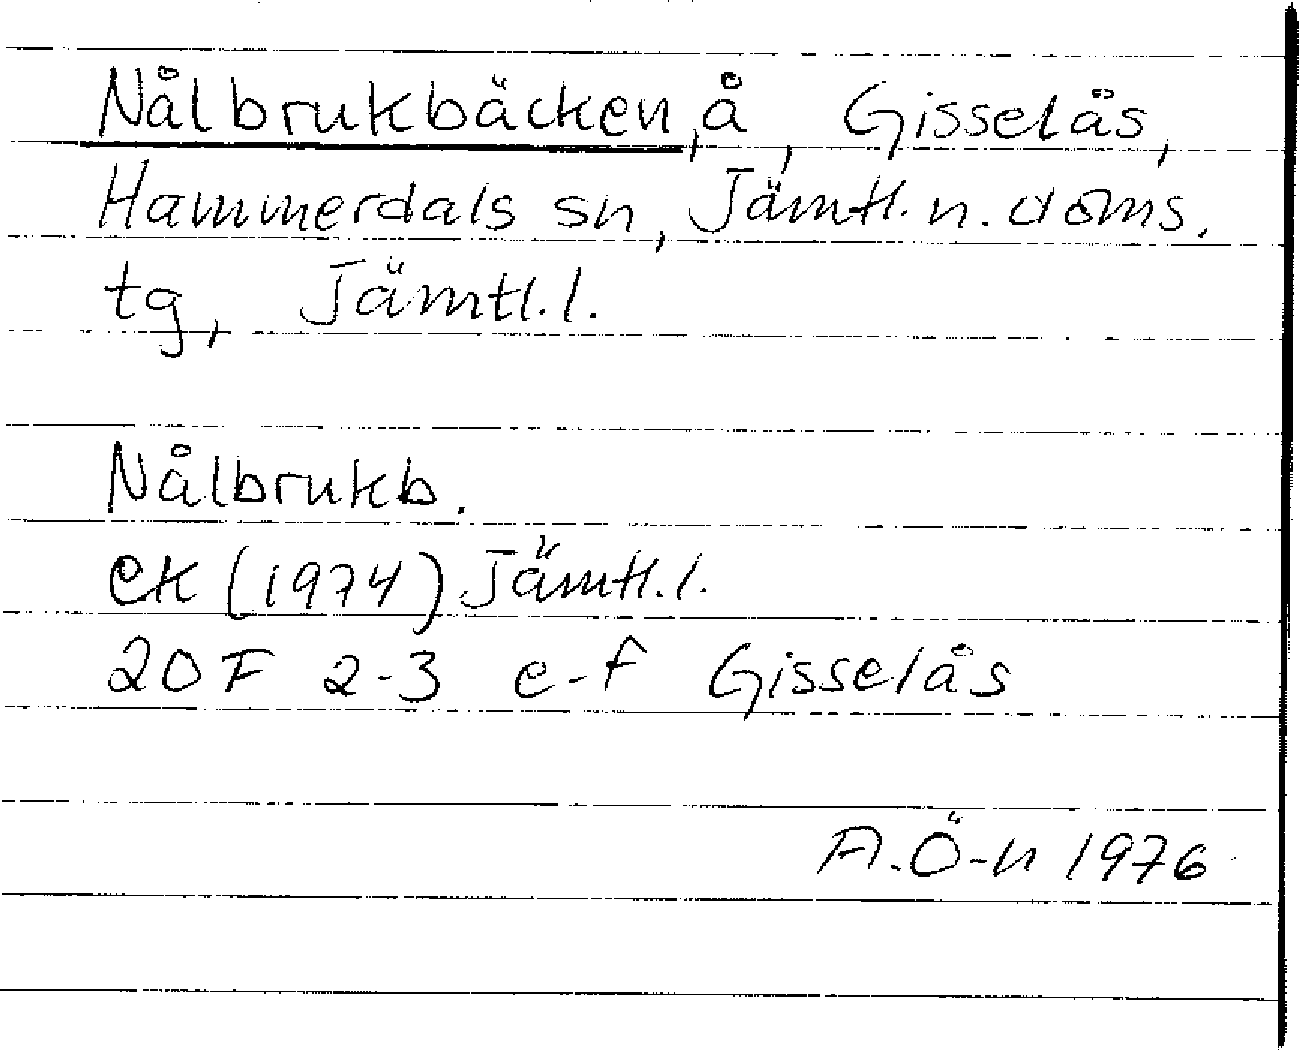 Nålbrukbäcken, å, Gisselås,
Hammerdals sn, Jämtl. n. doms.
tg, Jämtl. l.
Nålbrukb.
ek (1974) Jämtl. l.
20F 2-3 e-f Gisselås
A.Ö-n 1976